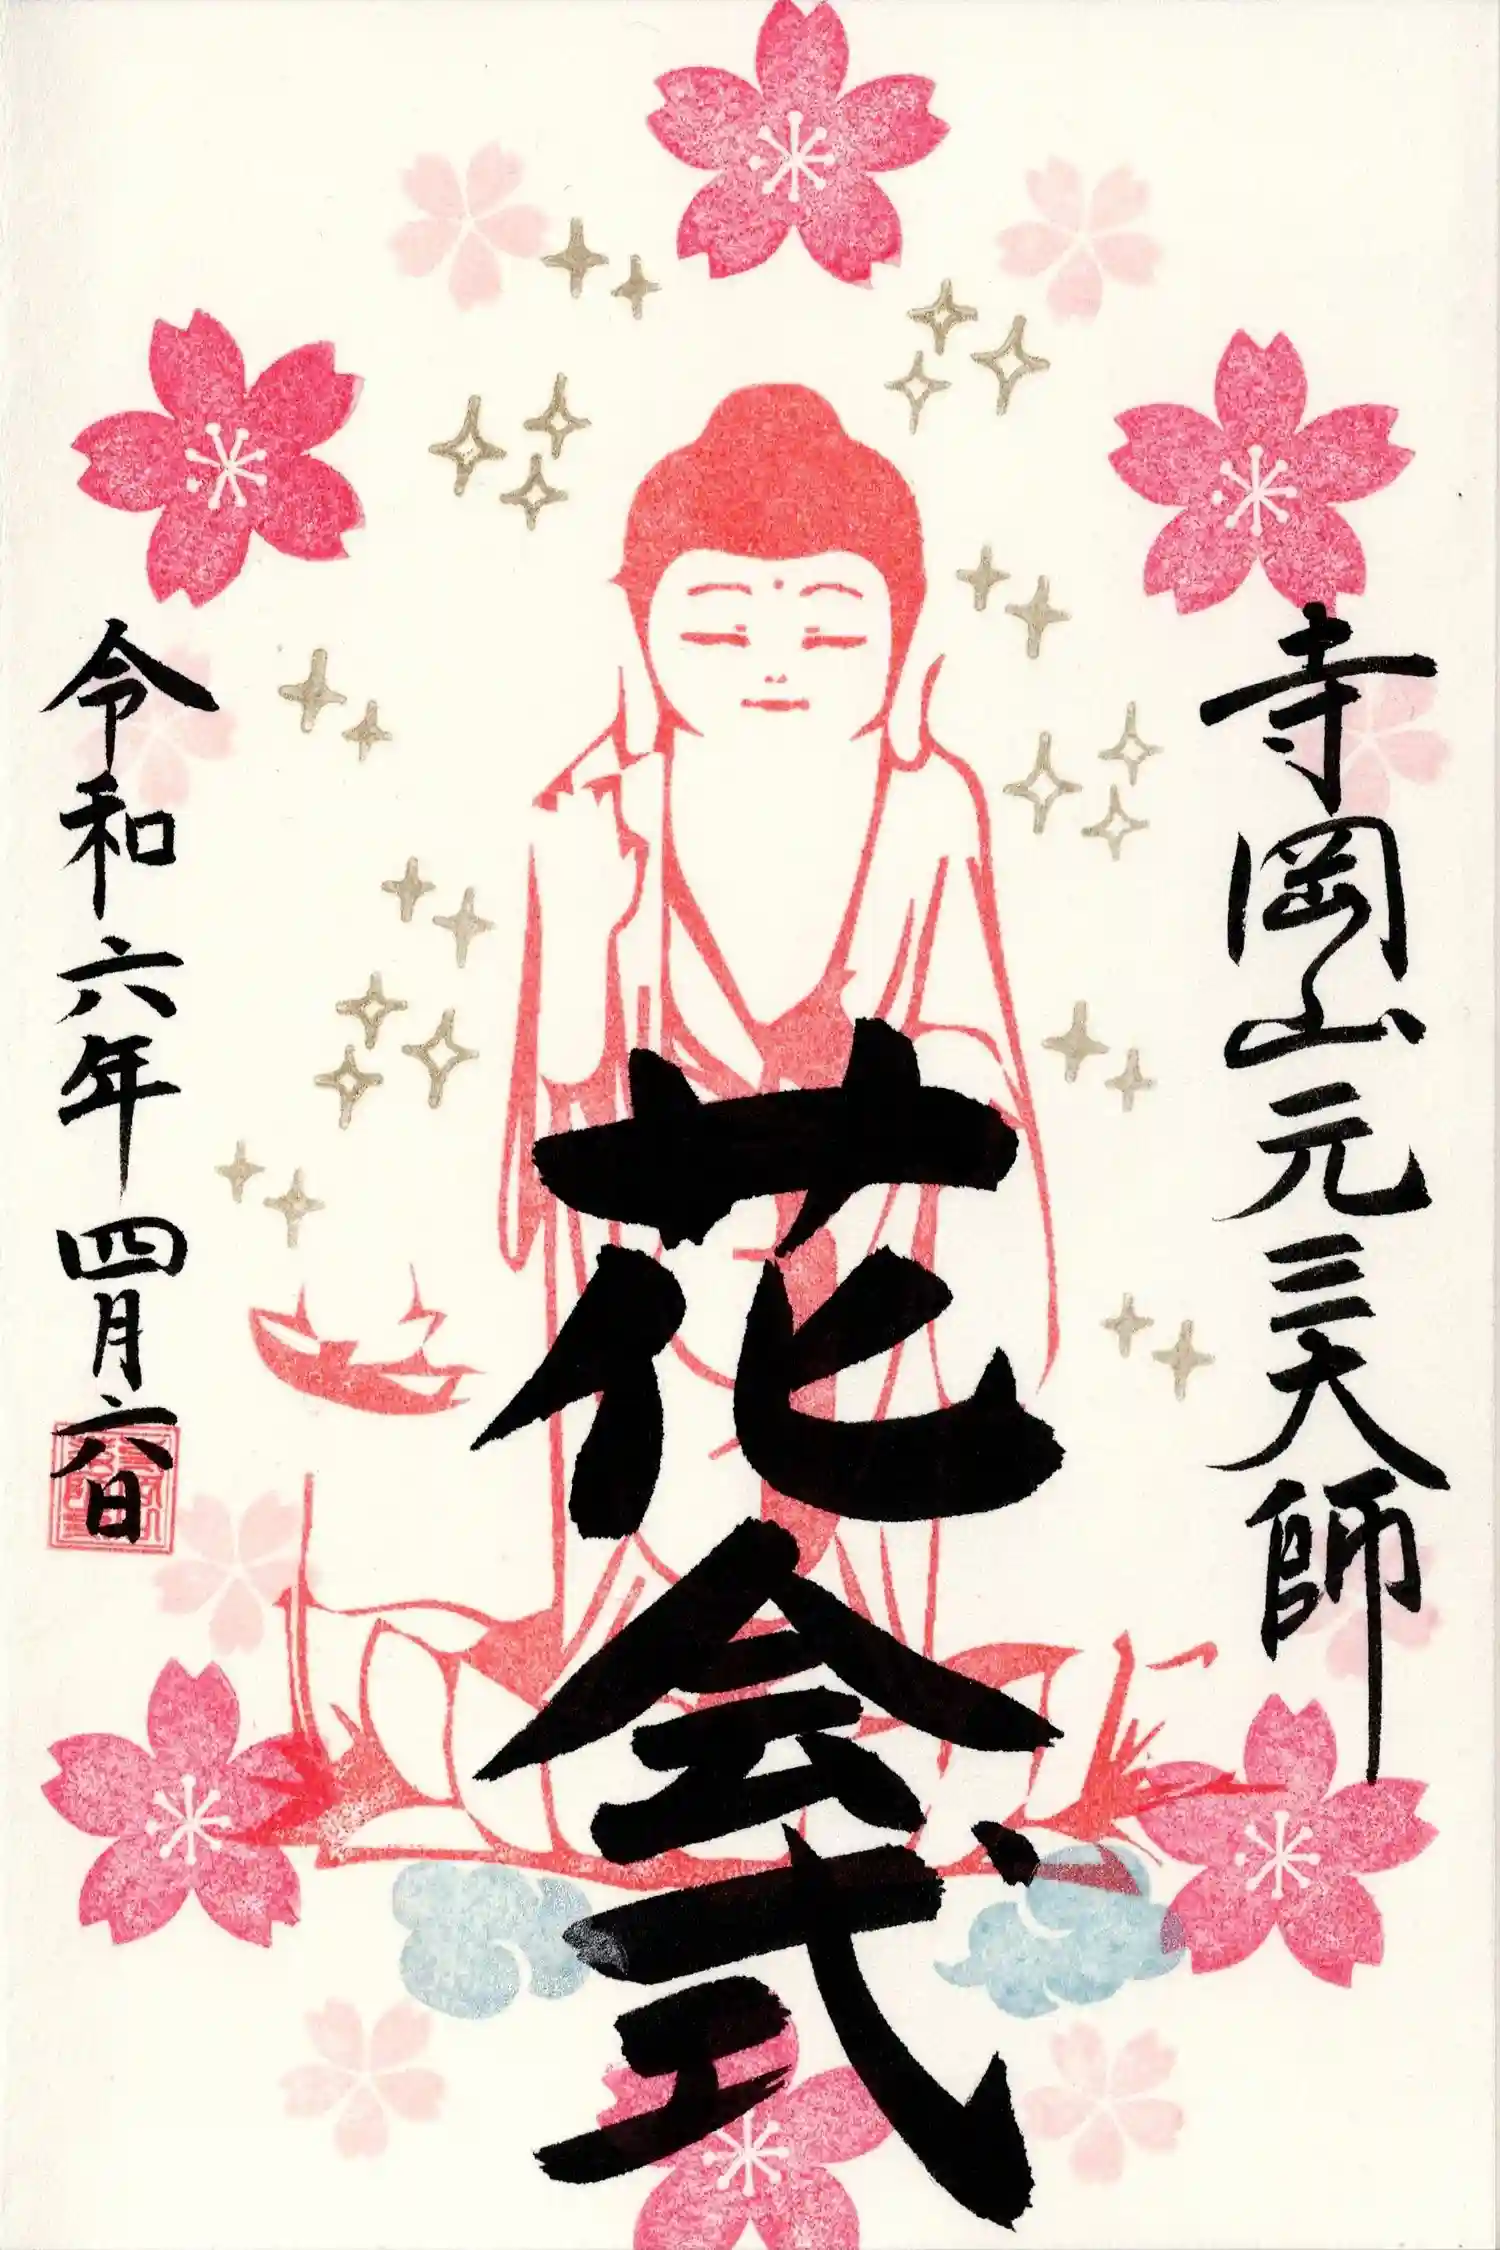 寺岡山元三大師
花会式
令和六年四月六日